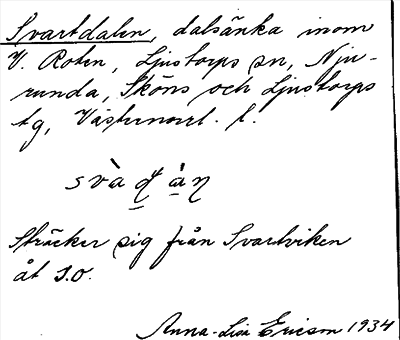 Svartdalen, dalsänka inom
V. Roten, Ljustorps sn, Nju-
runda, Sköns och Ljustorps
tg, Västernorrl. l.
Sträcker sig från Svartviken
åt S.O.
Anna-Lisa Ericson 1934